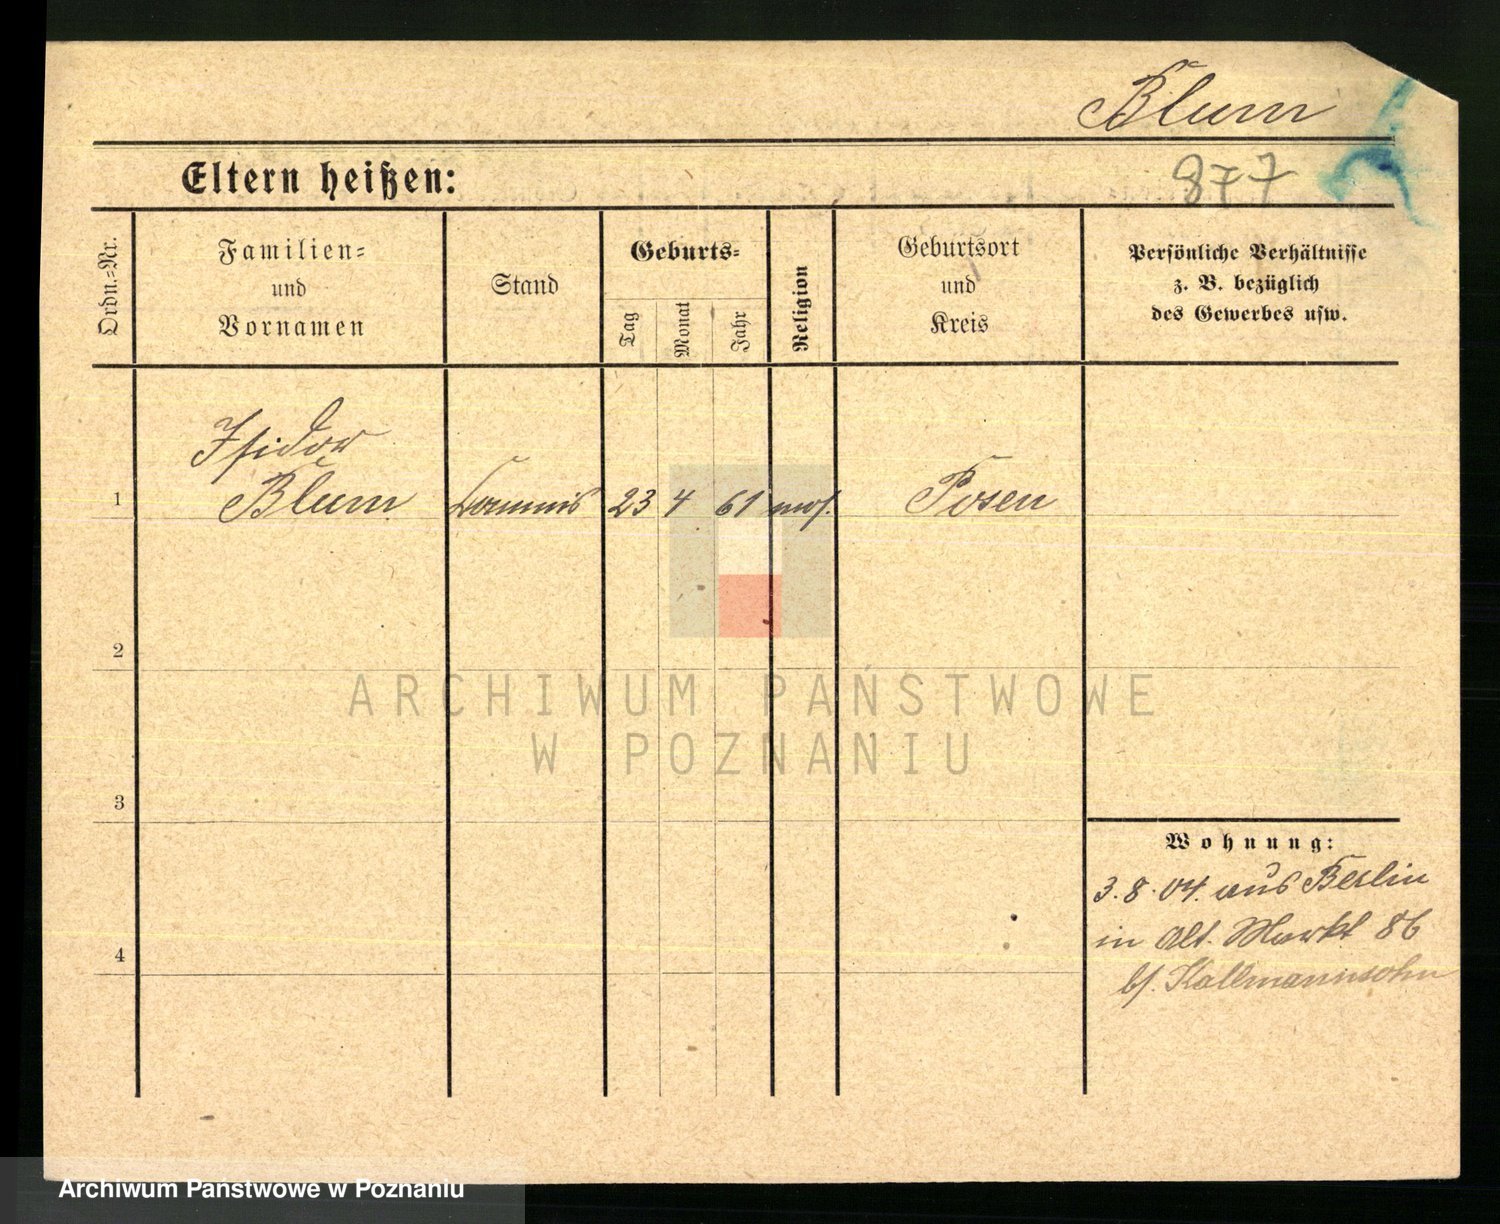 Blum
Eltern heißen:
877
Ordn.=Nr.
Familien=
und
Vornamen
Stand
Geburts=
Tag
Monat
Jahr
Religion
Geburtsort
und
Kreis
Persönliche Verhältnisse
z. B. bezüglich
des Gewerbes usw.
Isidor
1 Blum Commis 23 4 61 mos. Posen
2
ARCHIWUM PAŃSTWOWE
W POZNANIU
3
Wohnung:
3.8.04. aus Berlin
in Alt. Markt 86
4
b/. Kallmannsohn
Archiwum Państwowe w Poznaniu